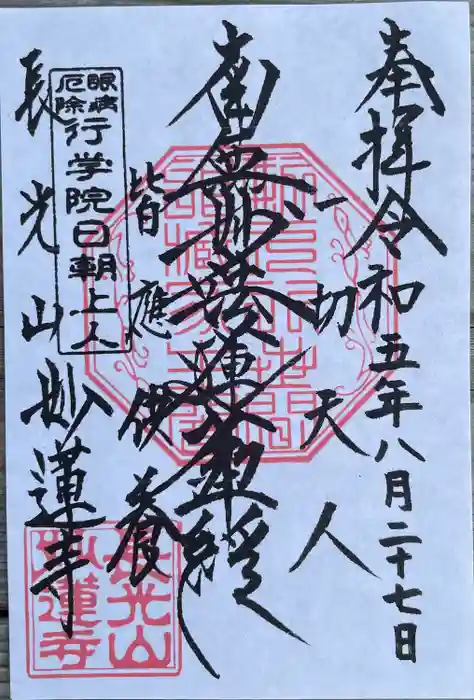 奉拝令和五年八月二十七日
一切天人
南無妙法蓮華経
皆應供養
眼病
厄除
行学院日朝上人
長光山妙蓮寺
長光山
妙蓮寺